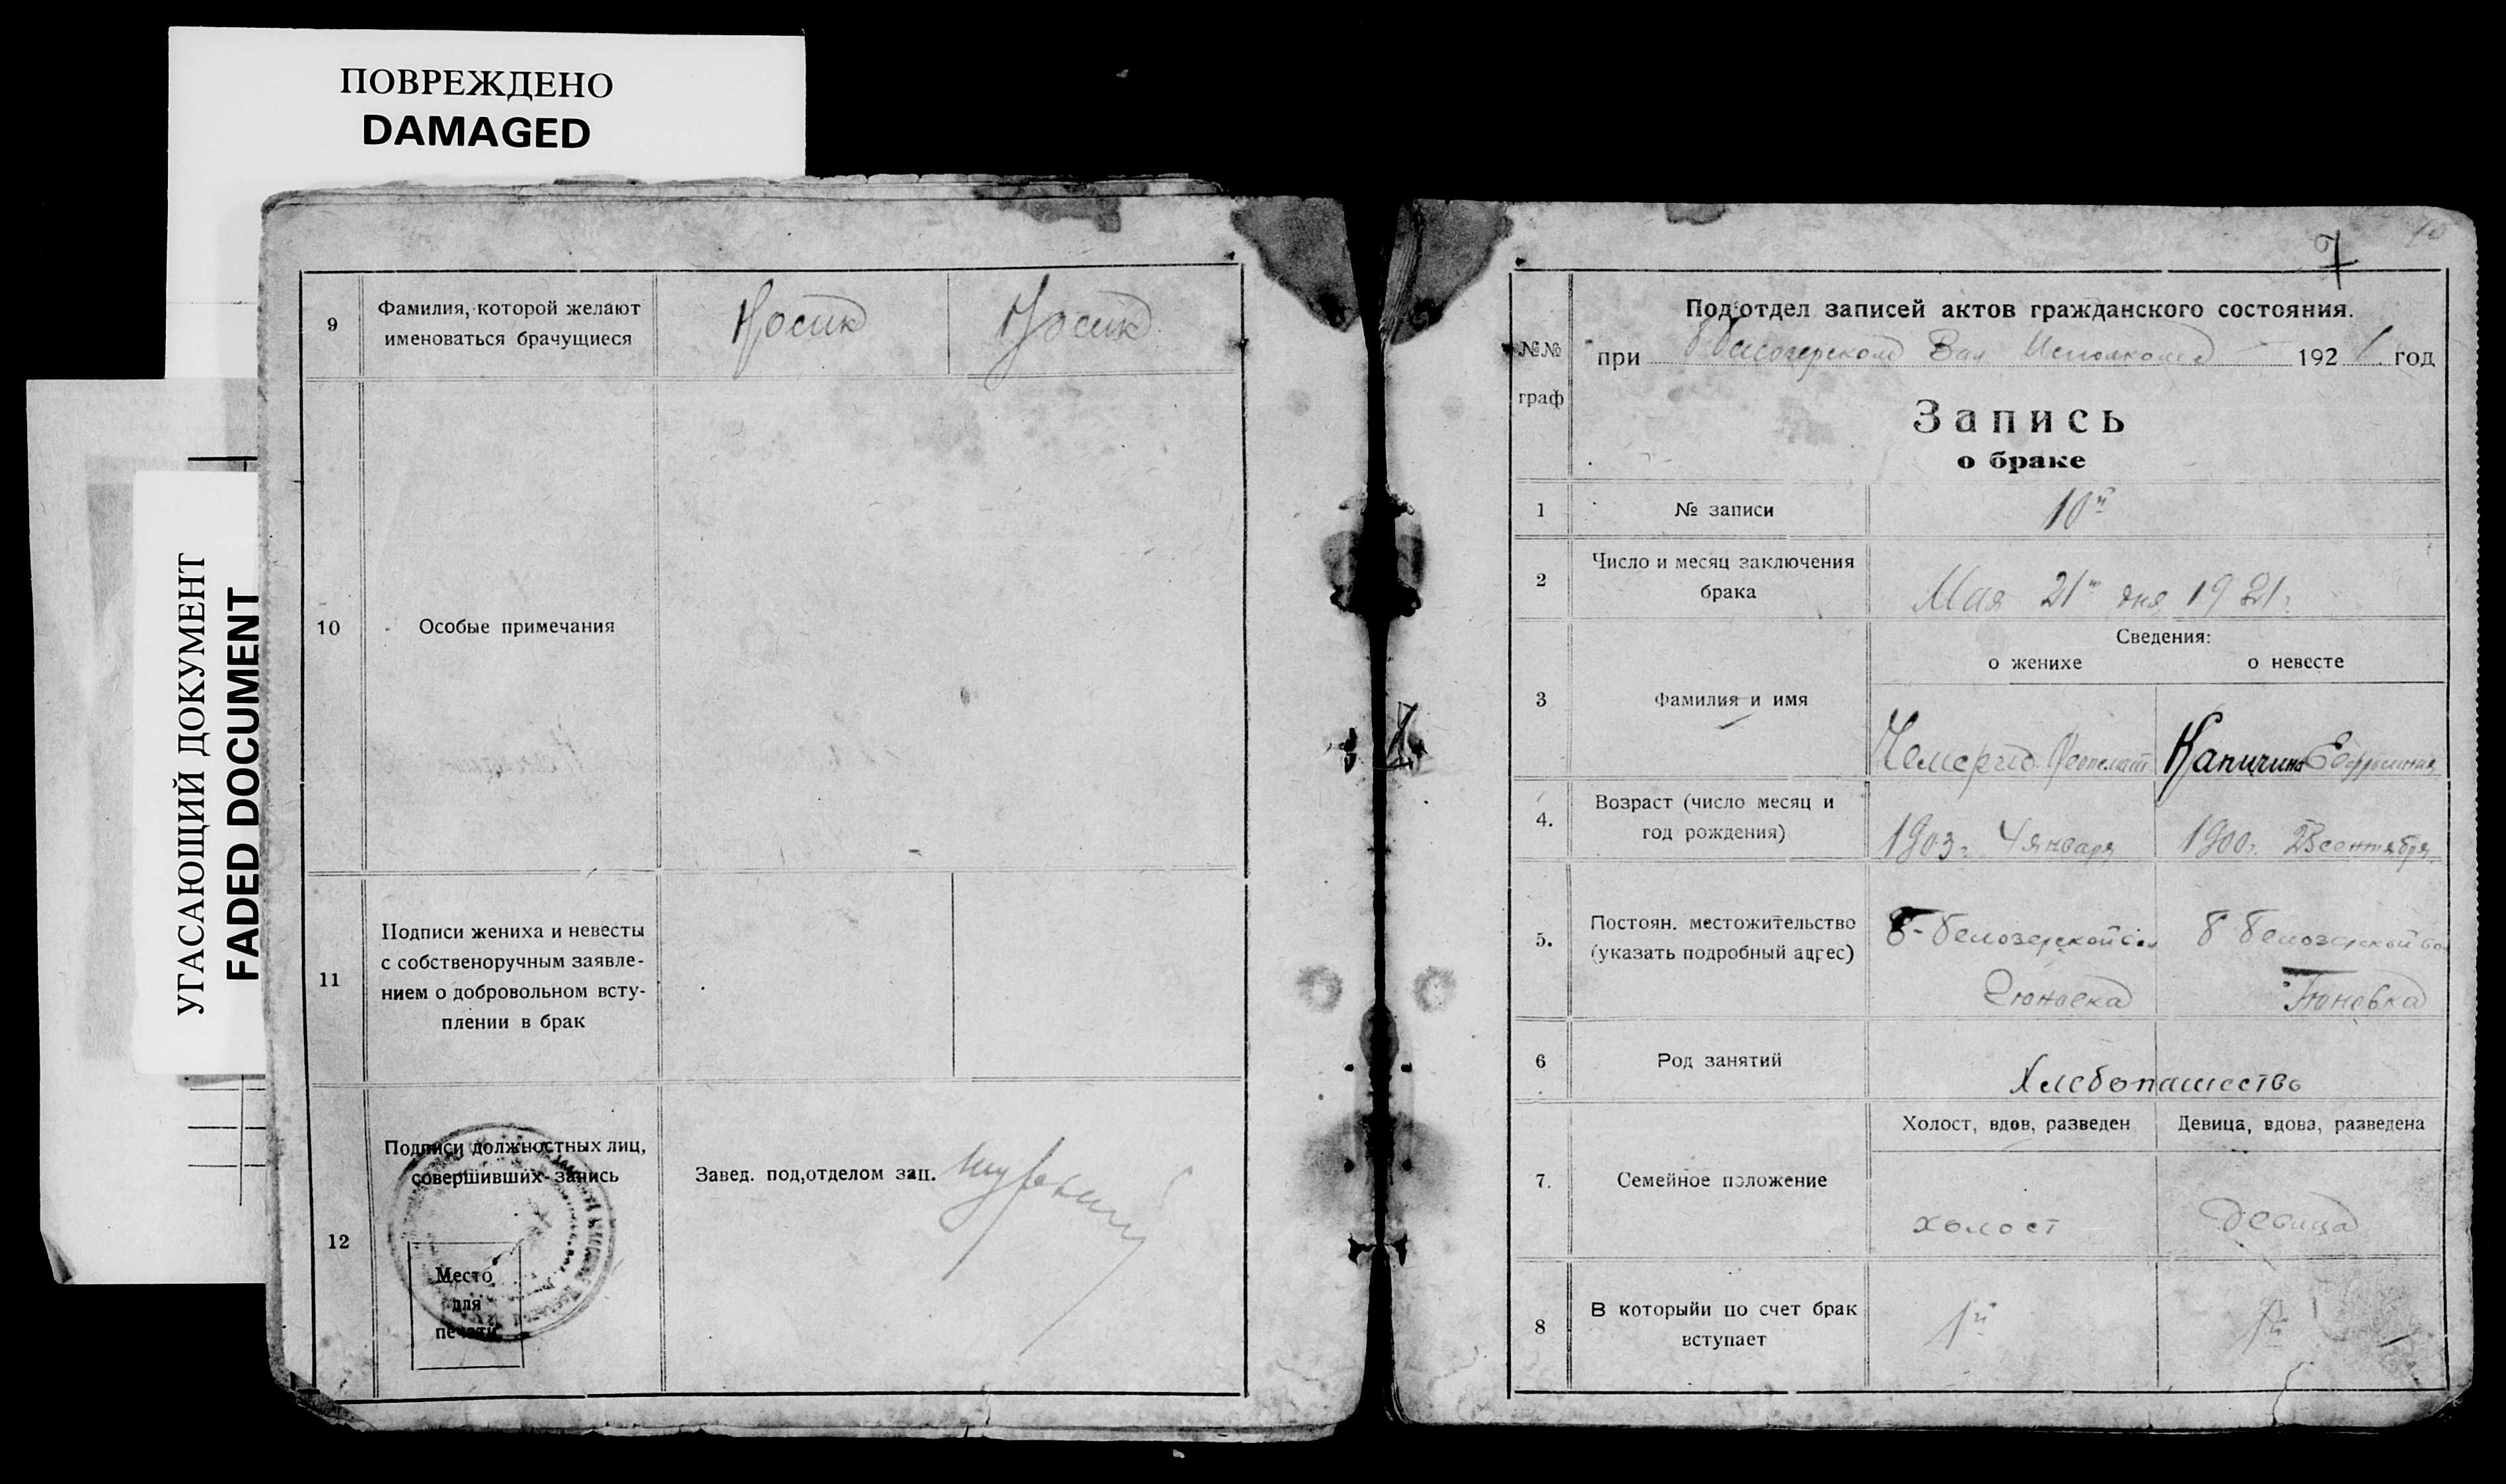 ПОВРЕЖДЕНО
DAMAGED
УГАСАЮЩИЙ ДОКУМЕНТ
FADED DOCUMENT
9
Фамилия, которой желают
именоваться брачущиеся
Носик
Носик
10
Особые примечания
11
Подписи жениха и невесты
с собственоручным заявле-
нием о добровольном всту-
плении в брак
12
Подписи должностных лиц,
совершивших запись
Место
для
печати
Завед. под,отделом зап.
7
10
№№
граф
Под'отдел записей актов гражданского состояния.
при Исполкома 1921 год
Запись
о браке
1
№ записи
10й
2
Число и месяц заключения
брака
Мая 21го дня 1921г.
Сведения:
о женихе
о невесте
3
Фамилия и имя
4.
Возраст (число месяц и
год рождения)
1903г. 4 января
1900г. сентября
5.
Постоян. местожительство
(указать подробный адрес)
Белозерской
Белозерской
Тюновка
6
Род занятий
Хлебопашество
7.
Семейное положение
Холост, вдов, разведен
Девица, вдова, разведена
холост
девица
8
В которыйи по счет брак
вступает
1й
1й